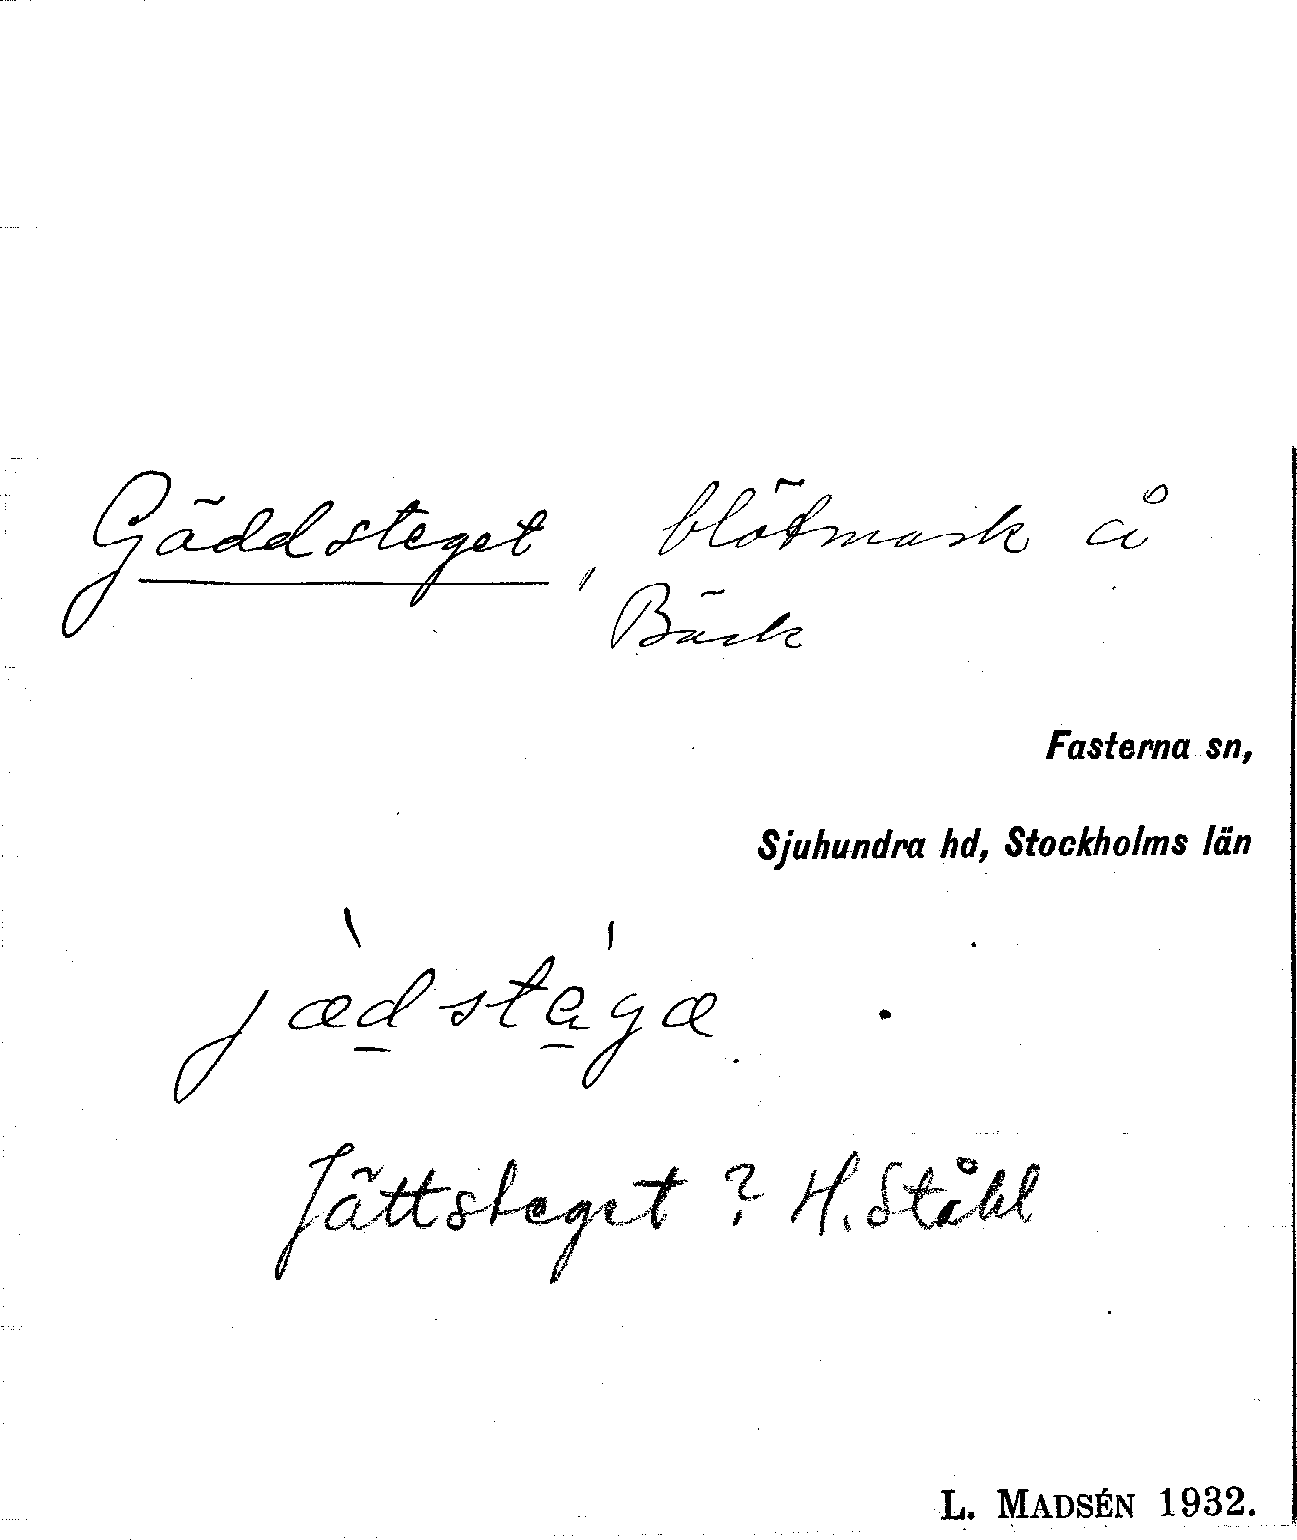 Gäddsteget, blötmark å
Bäck
Fasterna sn,
Sjuhundra hd, Stockholms län
jæ̀dstá̱gæ
Jättsteget? H. Ståhl
L. MADSÉN 1932.